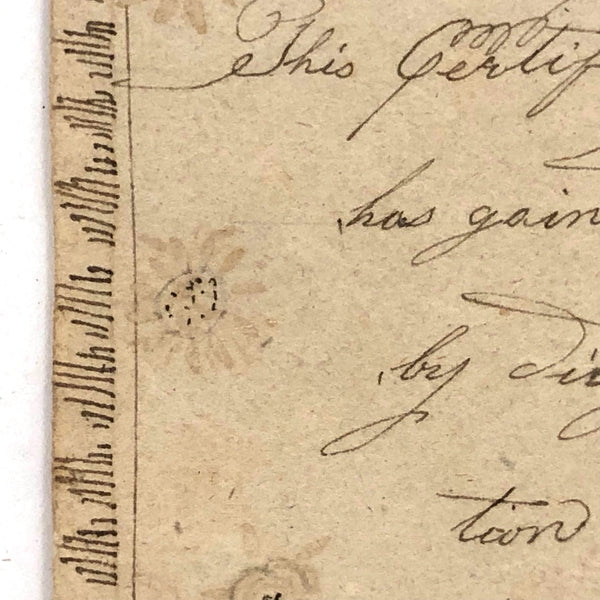 This Certif
has gain
by Di
tion